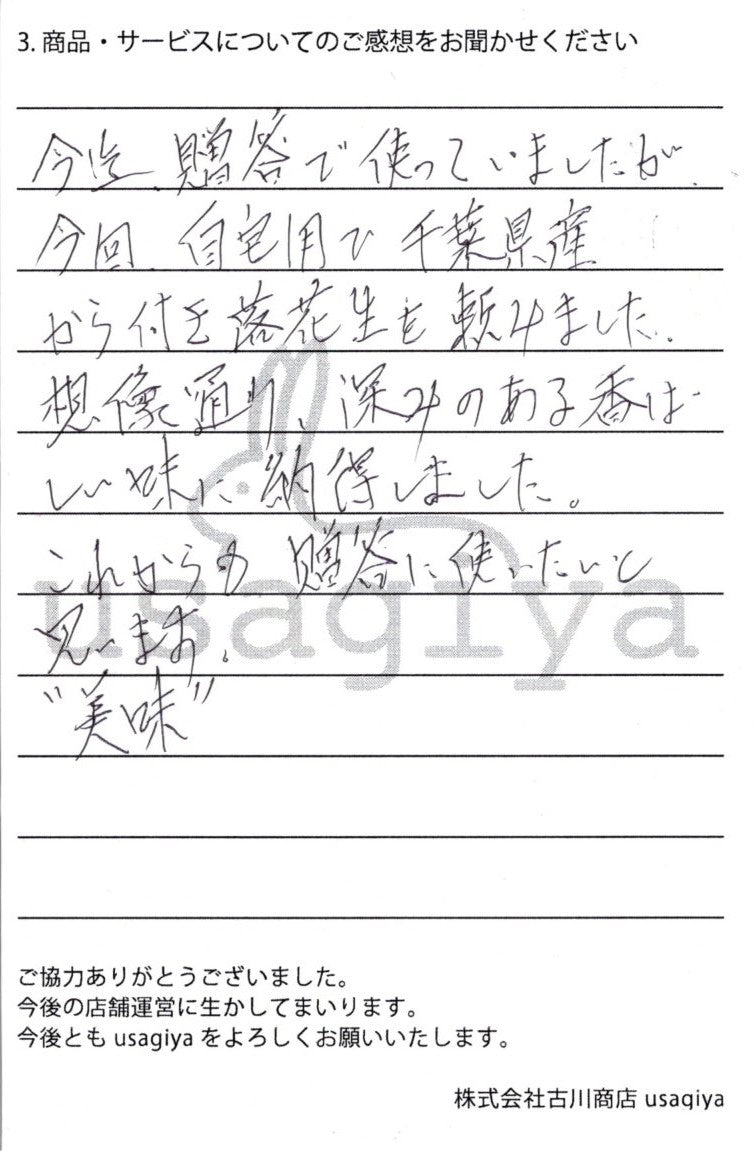 3. 商品・サービスについてのご感想をお聞かせください
今迄、贈答で使っていましたが、
今回、自宅用で千葉県産
から付き落花生を頼みました。
想像通り、深みのある香ば
しい味に納得しました。
これからも贈答に使いたいと
思います。
"美味"
usagiya
ご協力ありがとうございました。
今後の店舗運営に生かしてまいります。
今後とも usagiya をよろしくお願いいたします。
株式会社古川商店 usagiya